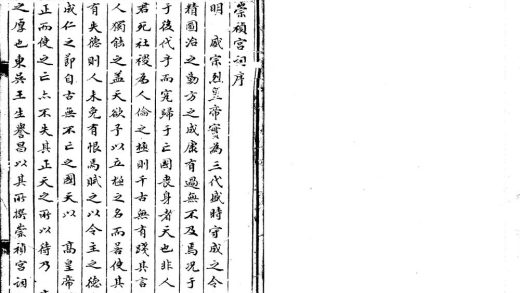 崇禎宮詞序
明 威宗烈皇帝實為三代盛時守成之令
精圖治之勤方之成康有過無不及焉況于
于後代乎而究歸于亡國喪身者天也非人
君死社稷為人倫之極則千古無有踐其言
人獨能之蓋天欲予以立極之名而若使其
有失德則人未免有恨焉賦之以令主之德
成仁之節自古無不亡之國天以 高皇帝
正而使之亡亦不失其正天之所以待乃
之厚也東吳王生譽昌以其所撰崇禎宮詞